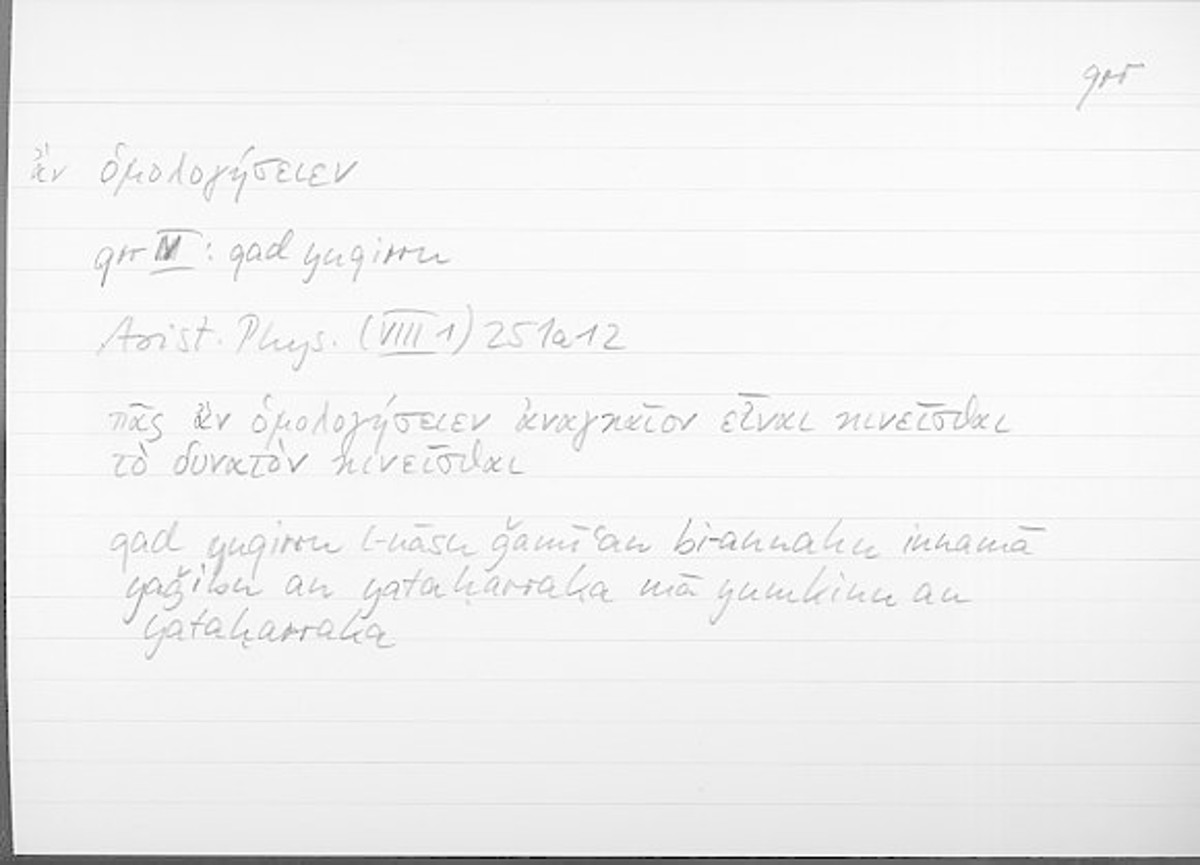 qrr
ἂν ὁμολογήσειεν
qrr IV : qad yuqirru
Arist. Phys. (VIII 1) 251a12
πᾶς ἂν ὁμολογήσειεν ἀναγκαῖον εἶναι κινεῖσθαι
τὸ δυνατὸν κινεῖσθαι
qad yuqirru l-nāsu ǧamīʿan bi-annahu innamā
yaǧibu an yataḥarraka mā yumkinu an
yataḥarraka